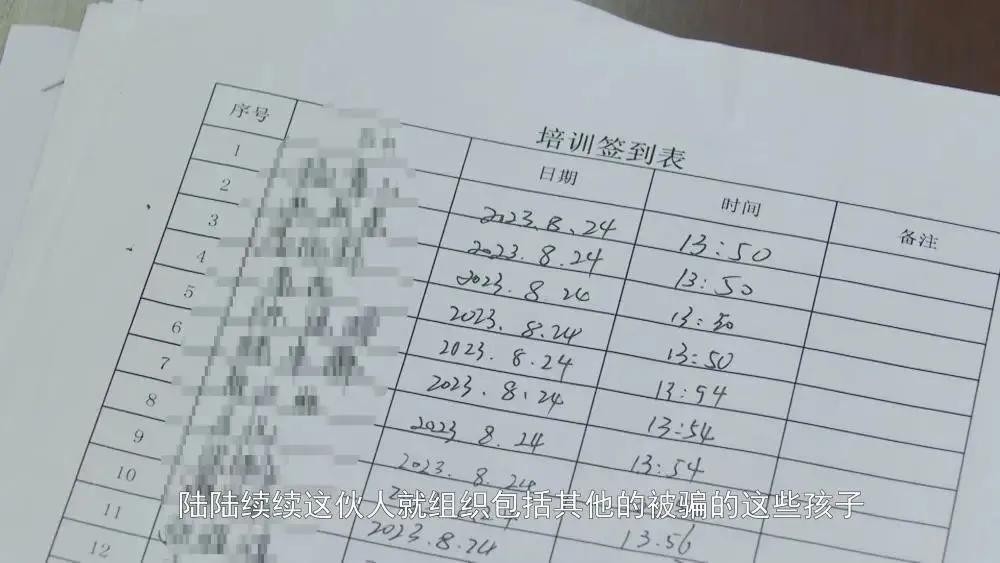 培训签到表
序号 日期 时间 备注
1 2023.8.24 13:50
2 2023.8.24 13:50
3 2023.8.24 13:50
4 2023.8.24 13:50
5 2023.8.24 13:54
6 2023.8.24 13:54
7 2023.8.24 13:54
8 2023.8.24
9 13.56
10 2023.8.24
11
12
陆陆续续这伙人就组织包括其他的被骗的这些孩子